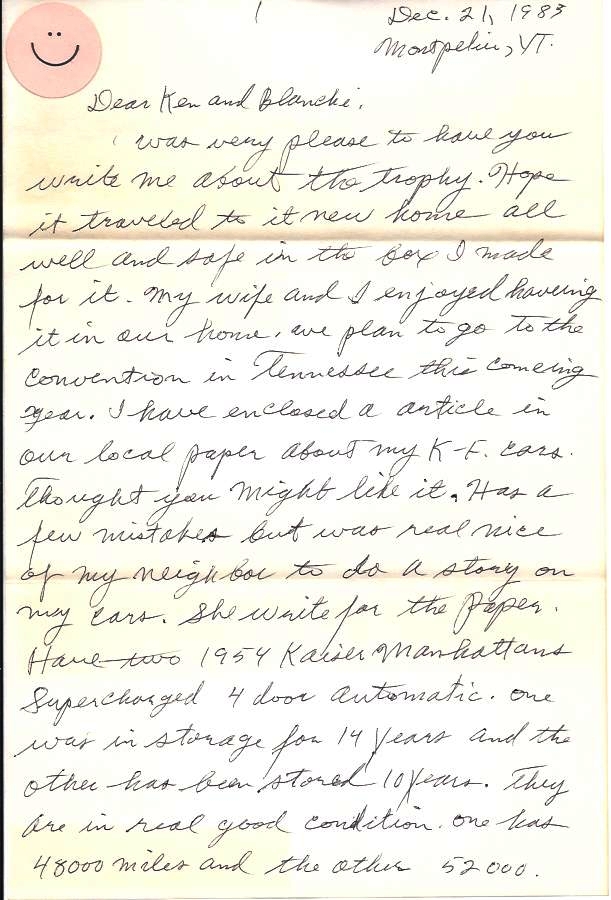 1
Dec. 21, 1983
Montpelier, VT.
Dear Ken and Blanche,
I was very please to have you
write me about the trophy. Hope
it traveled to it new home all
well and safe in the box I made
for it. My wife and I enjoyed haveing
it in our home, we plan to go to the
convention in Tennessee this comeing
year. I have enclosed a article in
our local paper about my K-F. cars.
Thought you might like it. Has a
few mistakes but was real nice
of my neighbor to do a story on
my cars. She write for the paper.
Have two 1954 Kaiser Manhattans
Supercharged 4 door automatic. one
was in storage for 14 years and the
other has been stored 10 years. They
are in real good condition. one has
48000 miles and the other 52000.